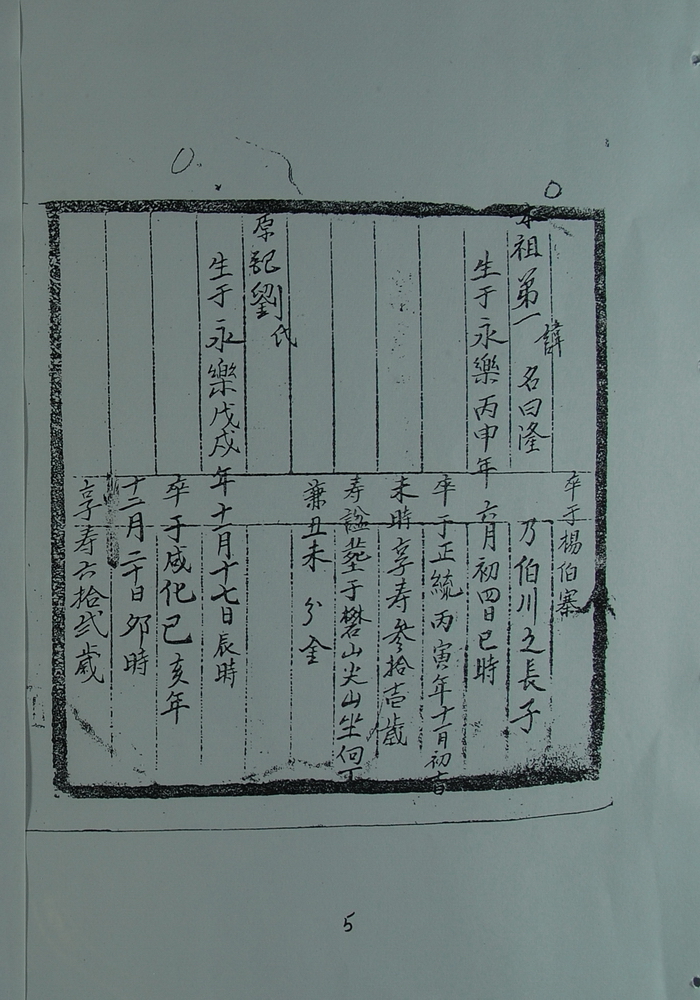 卒于楊伯寨
本祖第一諱名曰滏 乃伯川之長子
生于永樂丙申年六月初四日巳時
卒于正統丙寅年十一月初吉
未時享寿叁拾壱歲
寿謚塟于礬山尖山坐向丁
兼丑未分金
原記劉氏
生于永樂戊戌年十一月十七日辰時
卒于成化己亥年
十二月二十日夘時
享寿六拾弍歲
5